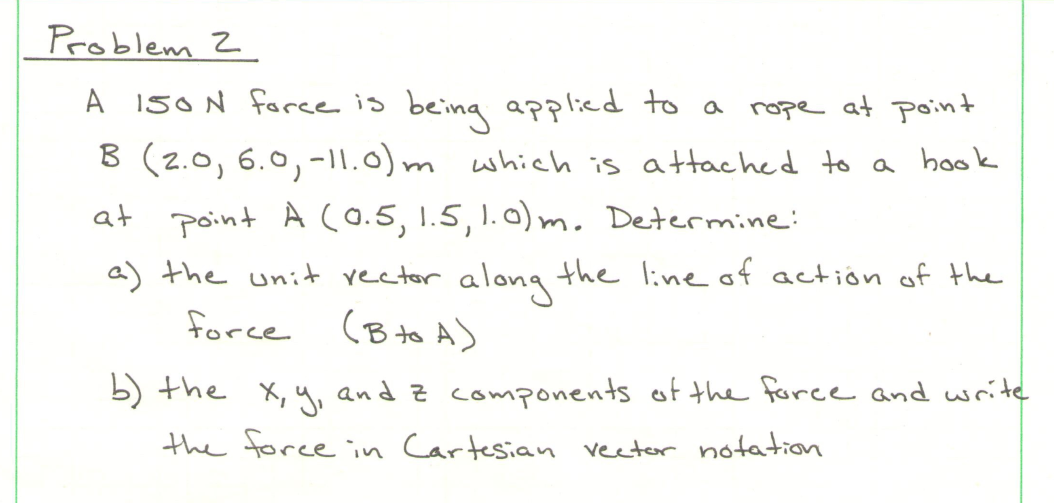 Problem 2
A 150 N force is being applied to a rope at point
B (2.0, 6.0, -11.0) m which is attached to a hook
at point A (0.5, 1.5, 1.0) m. Determine:
a) the unit vector along the line of action of the
force (B to A)
b) the x, y, and z components of the force and write
the force in Cartesian vector notation